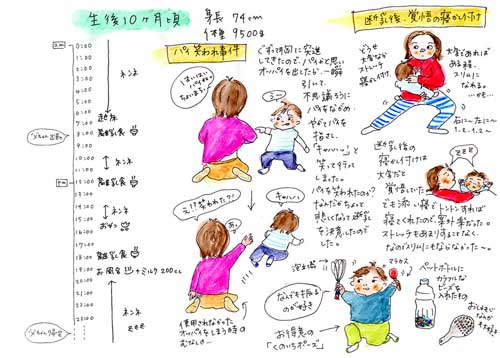 生後10ヶ月頃
身長 74cm
体重 9500g
AM
0:00
1:00
2:00
3:00
4:00
5:00
6:00
7:00
8:00
9:00
10:00
11:00
PM
13:00
14:00
15:00
16:00
17:00
18:00
19:00
20:00
21:00
22:00
23:00
ネンネ
起床
離乳食
ネンネ
離乳食
ネンネ
おやつ
離乳食
お風呂
ミルク200cc
ネンネ
zzz
パイ笑われ事件
ぐずって胸に突進
してきたので、パイかと思い
オッパイを出したが…一瞬
引いて、
不思議そうに
パイをながめ、
やがてパイを
指さし、
「キャハハッ」と
笑って行って
しまった。
パイを笑われたのか?
なんだかちょっと
悲しくなって断乳
を決意したので
した。
はいはい
パイね。
ちょいまち。
え!?笑われた?!
キャハハ
使用されなかった
オッパイをしまう時の
むなしさ…
断乳後、覚悟の寝かし付け
どうせ
大変なら
ストレッチ
寝かし付け。
大変であれば
ある程、
スリムに
なれる。
…かも…
右に〜左に〜
1・2、1・2〜
断乳後の
寝かし付けは
大変だと
覚悟していた。
でも添い寝でトントンすれば
寝てくれたので、案外楽だった。
ストレッチもあまりすることなく、
なのでスリムにもならなかった〜。
zzz
泡立器
マラカス
なんでも振る
のが好き
お得意の
「くのいちポーズ」
ペットボトルに
カラフルな
ビーズを
入れたもの